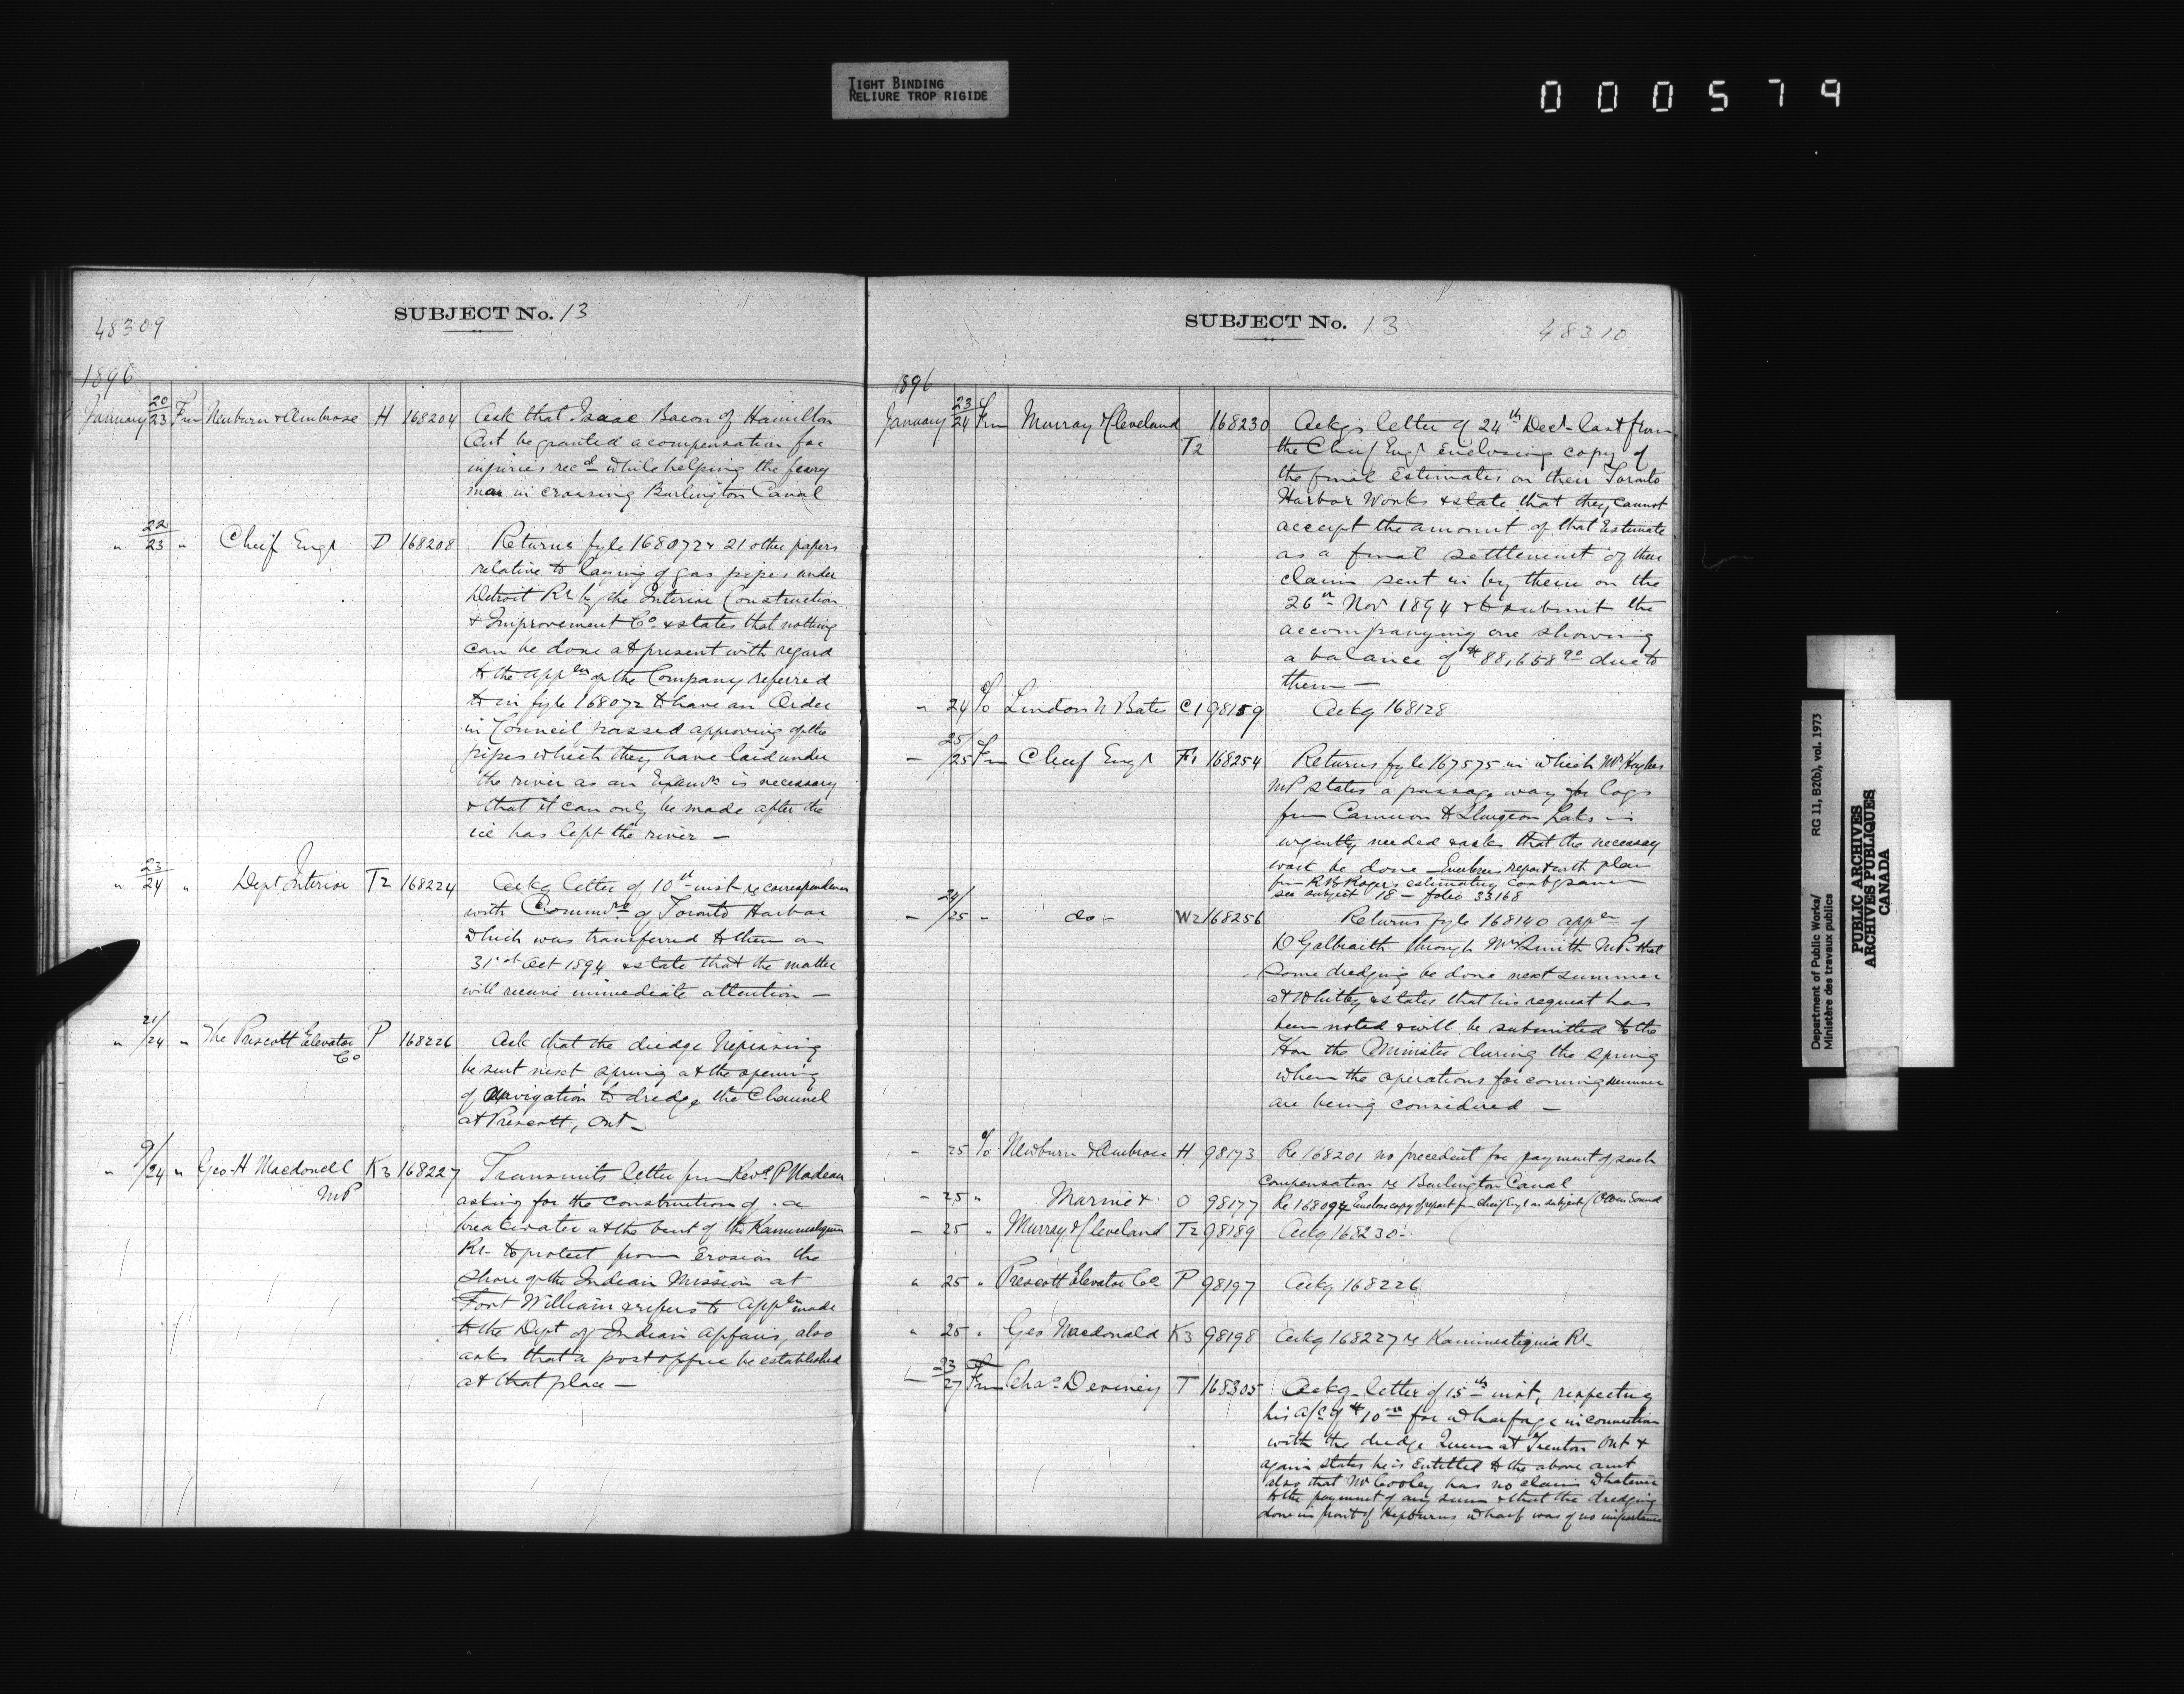 TIGHT BINDING
RELIURE TROP RIGIDE
000579
48309
SUBJECT No. 13
1896
January 20/23 Frm Newburn & Ambrose H 168204 Ask that Isaac Bacon of Hamilton
Ont be granted a compensation for
injuries recd while helping the ferry
man in crossing Burlington Canal
" 22/23 " Chief Engr D 168208 Returns fyle 168072 & 21 other papers
relative to laying of gas pipes under
Detroit Rr by the Interior Construction
& Improvement Co & states that nothing
can be done at present with regard
to the appln of the Company referred
to in fyle 168072 to have an Order
in Council passed approving of the
pipes which they have laid under
the river as an Examn is necessary
& that it can only be made after the
ice has left the river —
" 23/24 " Dept Interior T2 168224 Ackg letter of 10th inst re correspondence
with Commrs of Toronto Harbor
which was transferred to them on
31st Oct 1894 & state that the matter
will receive immediate attention —
" 21/24 " The Prescott Elevator P 168226 Ask that the dredge Nipissing
Co
be sent next spring at the opening
of navigation to dredge the Channel
at Prescott, Ont —
" 9/24 " Geo. H Macdonell K3 168227 Transmits letter from Revd P Nadeau
MP
asking for the construction of a
breakwater at the bent of the Kaministiquia
Rr to protect from Erosion the
Shore of the Indian Mission at
Fort William & refers to Appln made
to the Dept of Indian Affairs, also
asks that a post office be established
at that place —
SUBJECT No. 13
48310
1896
January 23/24 Frm Murray & Cleveland 168230 Ackgs letter of 24th Decr last from
T2 the Chief Engr Enclosing copy of
the final Estimates on their Toronto
Harbor Works & state that they cannot
accept the amount of that Estimate
as a final settlement of their
claim sent in by them on the
26th Nov 1894 & to submit the
accompanying one showing
a balance of $88,658 90 due to
them —
" 24 % Lindon W Bates C1 98159 Ackg 168128
— 25/25 Frm Chief Engr F1 168254 Returns fyle 167575 in which Mr Hughes
MP states a passage way for logs
from Cameron to Sturgeon Lake is
urgently needed & asks that the necessary
work be done Encloses report with plan
from R B Rogers estimating cost of same
see subject 18 — folio 33168
— 24/25 " do — W2 168256 Returns fyle 168140 appln of
D Galbraith through Mr Smith M.P. that
some dredging be done next summer
at Whitby & states that his request has
been noted & will be submitted to the
Hon the Minister during the spring
when the operations for coming summer
are being considered —
- 25 % Newburn & Ambrose H 98173 Re 168201 no precedent for payment of such
compensation re Burlington Canal
- 25 " Marine & O 98177 Re 168094 Enclose copy of report from Chief Engr on subject (Owen Sound
- 25 " Murray & Cleveland T2 98189 Ackg 168230
" 25 " Prescott Elevator Co P 98197 Ackg 168226
" 25 " Geo Macdonald K3 98198 Ackg 168227 re Kaministiquia Rr
23/27 Frm Chas Deviney T 168305 Ackg letter of 15th inst, respecting
his a/c of $10 00 for wharfage in connection
with the dredge Queen at Trenton Ont &
again states he is entitled to the above amt
also that Mr Cooley has no claim whatever
to the payment of any sum & that the dredging
done in front of Hepburns wharf was of no importance
Department of Public Works/
Ministère des travaux publics
RG 11, B2(b), vol. 1973
PUBLIC ARCHIVES
ARCHIVES PUBLIQUES
CANADA